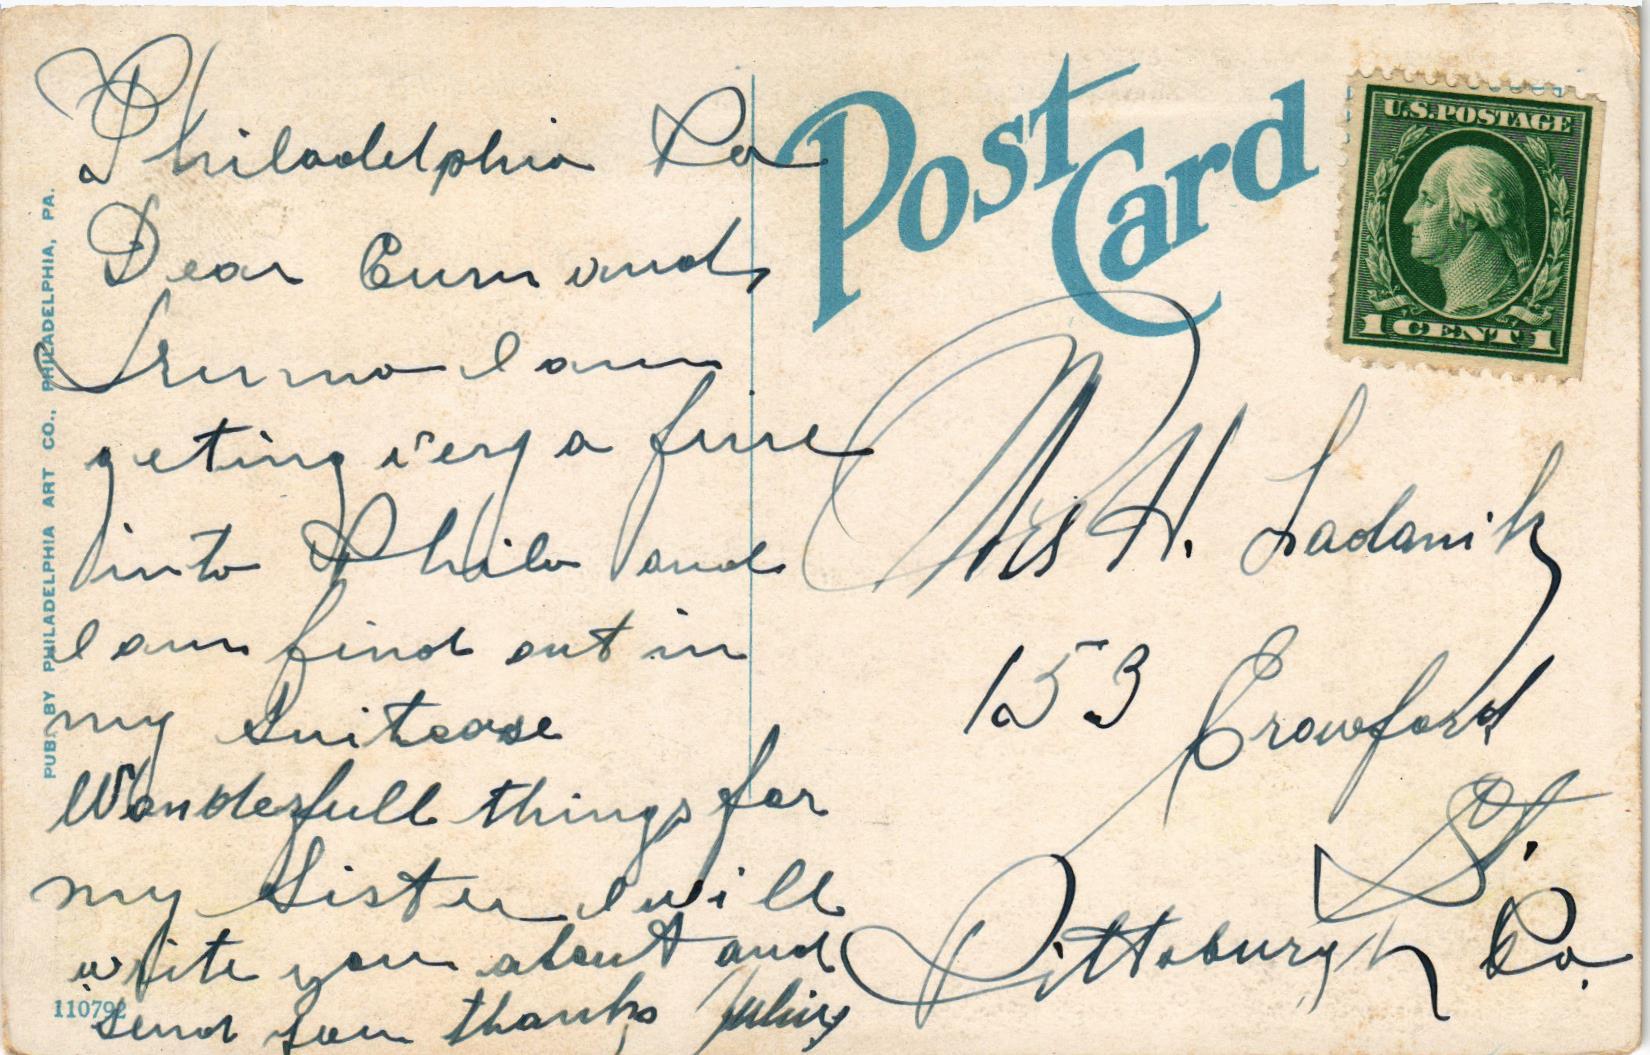 Philadelphia Pa
Dear Eum and
Irumo I am
geting very a fine
into Phila and
I am find out in
my Suitcase
Wonderfull things for
my Sister I will
write you about and
send you thanks Julius
PUB. BY PHILADELPHIA ART CO., PHILADELPHIA, PA.
110792
Post Card
U.S. POSTAGE
1 CENT 1
Mrs H. Ladanik
153 Crawford
St.
Pittsburgh Pa.